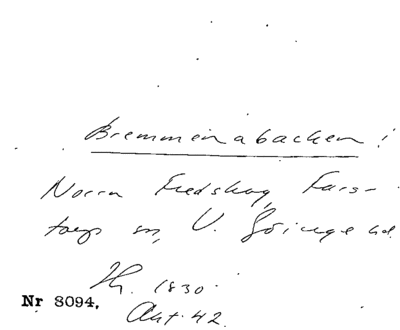 Bremmenabacken i
Norra Fredskog, Fars-
torps sn, V. Göinge hd.
Th. 1830.
Nr 8094.
Akt. 42.